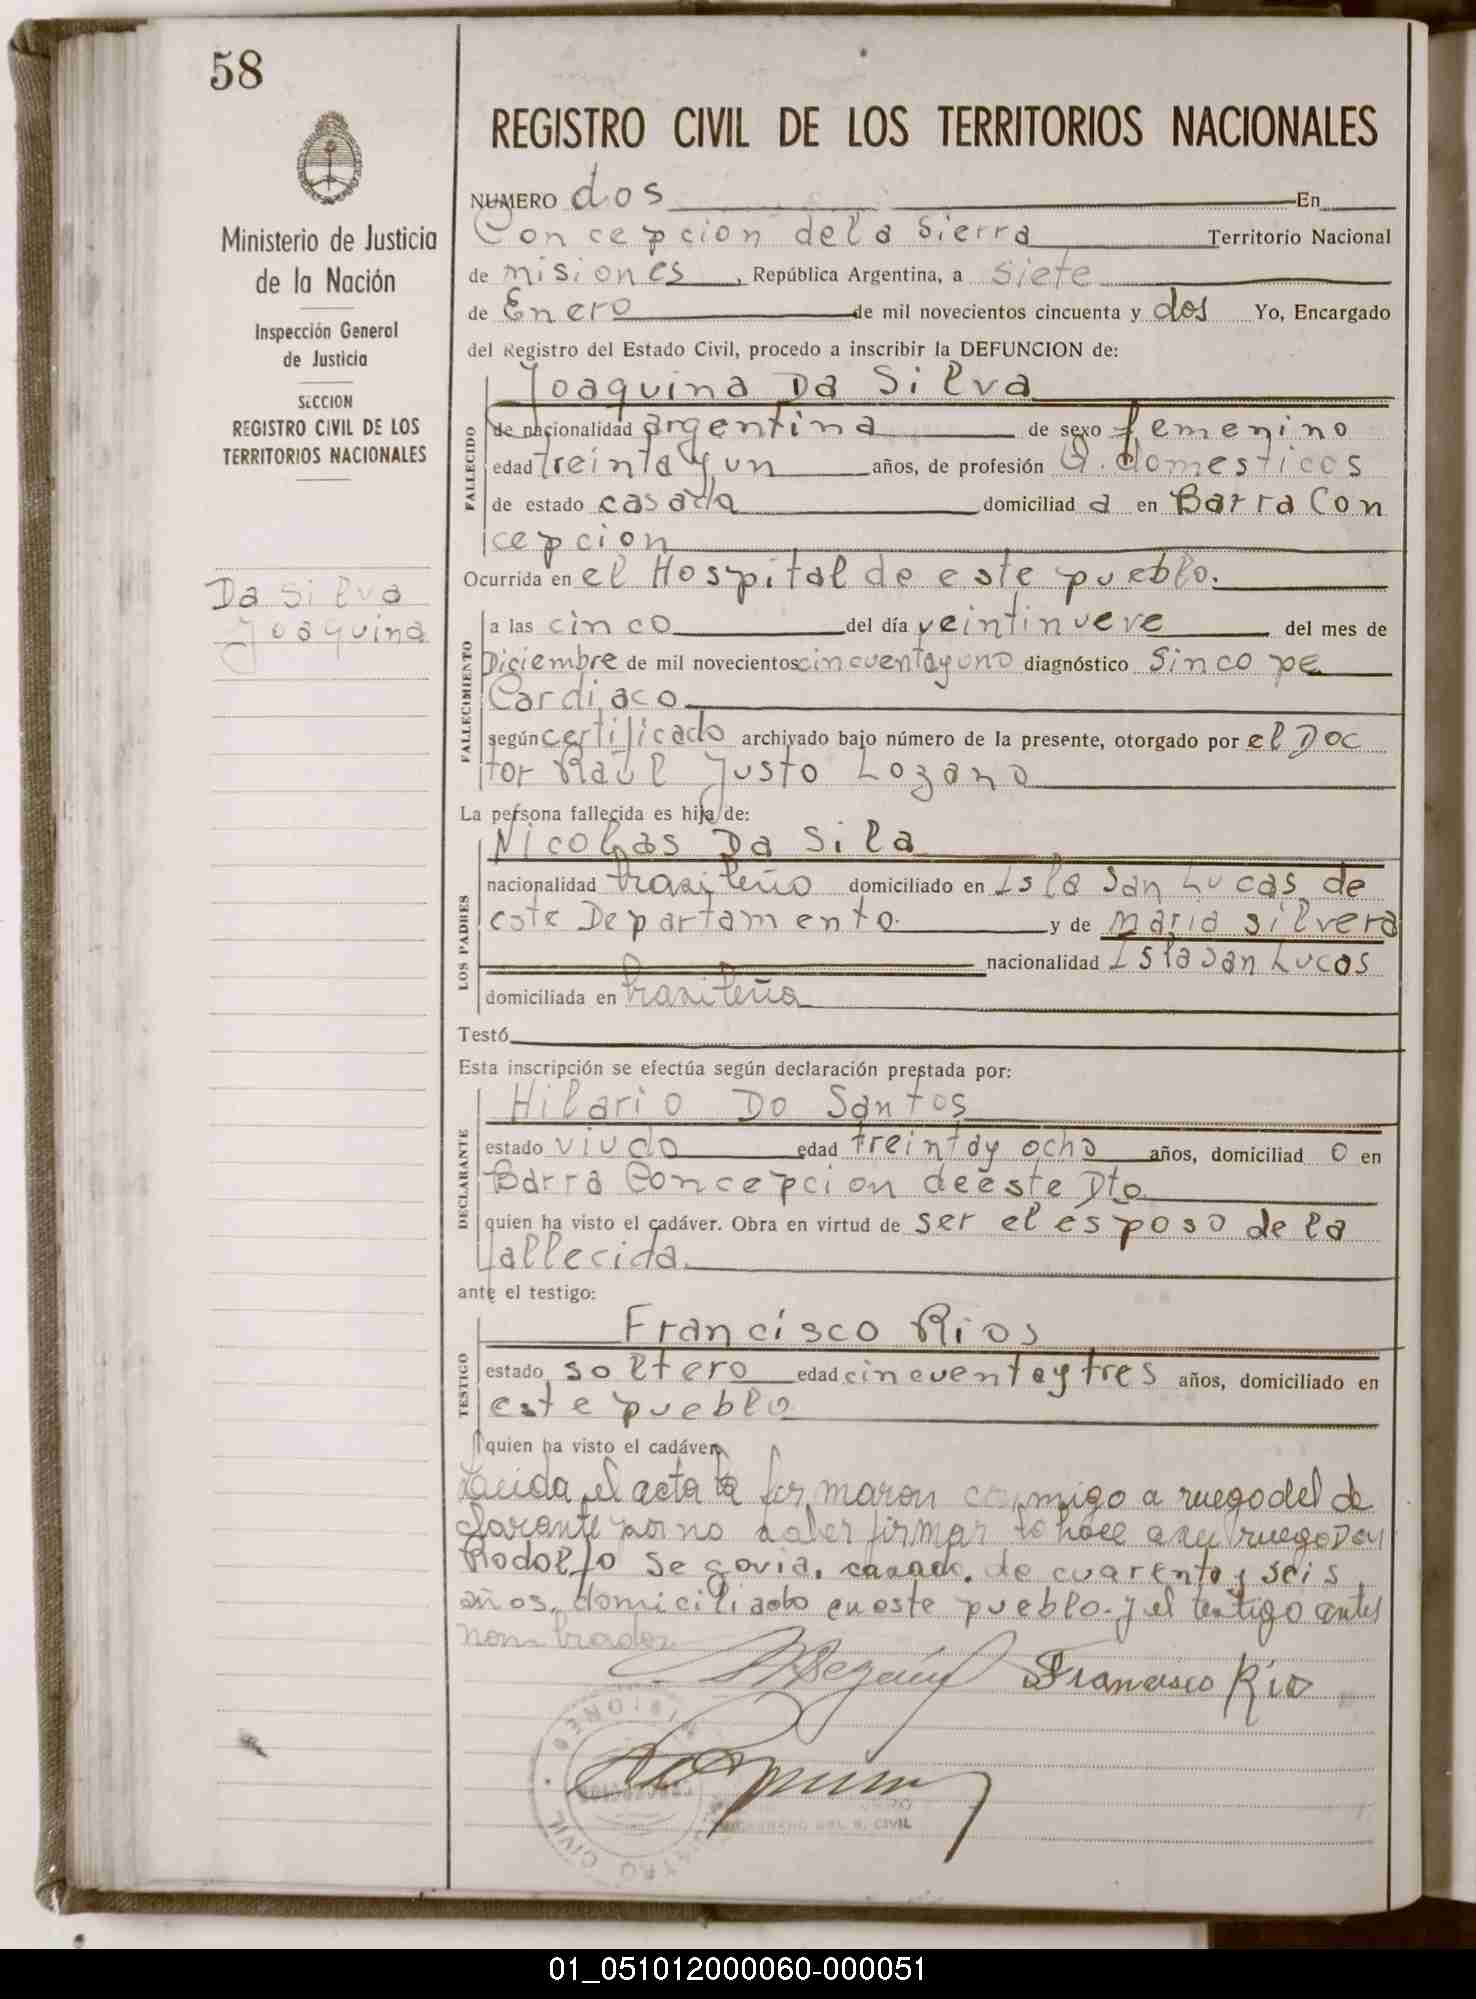 58
Ministerio de Justicia
de la Nación
Inspección General
de Justicia
SECCION
REGISTRO CIVIL DE LOS
TERRITORIOS NACIONALES
Da Silva
Joaquina
REGISTRO CIVIL DE LOS TERRITORIOS NACIONALES
NUMERO dos En
Concepcion de la Sierra Territorio Nacional
de misiones, República Argentina, a siete
de Enero de mil novecientos cincuenta y dos Yo, Encargado
del Registro del Estado Civil, procedo a inscribir la DEFUNCION de:
Joaquina Da Silva
FALLECIDO
de nacionalidad argentina de sexo femenino
edad treinta y un años, de profesión Q. domesticos
de estado casada domiciliad a en Barra Con
cepcion
Ocurrida en el Hospital de este pueblo.
FALLECIMIENTO
a las cinco del día veintinueve del mes de
Diciembre de mil novecientos cincuenta y uno diagnóstico Sincope
Cardiaco
según certificado archivado bajo número de la presente, otorgado por el Doc
tor Raul Justo Lozano
La persona fallecida es hija de:
LOS PADRES
Nicolas Da Sila
nacionalidad brasileño domiciliado en Isla San Lucas de
este Departamento. y de maria silvera
nacionalidad Isla San Lucas
domiciliada en brasileña
Testó
Esta inscripción se efectúa según declaración prestada por:
DECLARANTE
Hilario Do Santos
estado viudo edad treinta y ocho años, domiciliad o en
Barra Concepcion de este Dto
quien ha visto el cadáver. Obra en virtud de ser el esposo de la
fallecida.
ante el testigo:
TESTIGO
Francisco Rios
estado soltero edad cincuenta y tres años, domiciliado en
este pueblo
quien ha visto el cadáver
Leida el acta la firmaron conmigo a ruego del de
clarante por no saber firmar lo hace a su ruego Don
Rodolfo Segovia, casado. de cuarenta y seis
años. domiciliado en este pueblo. y el testigo antes
nombrados
Francisco Rio
MISIONES
REGISTRO CIVIL
01_051012000060-000051